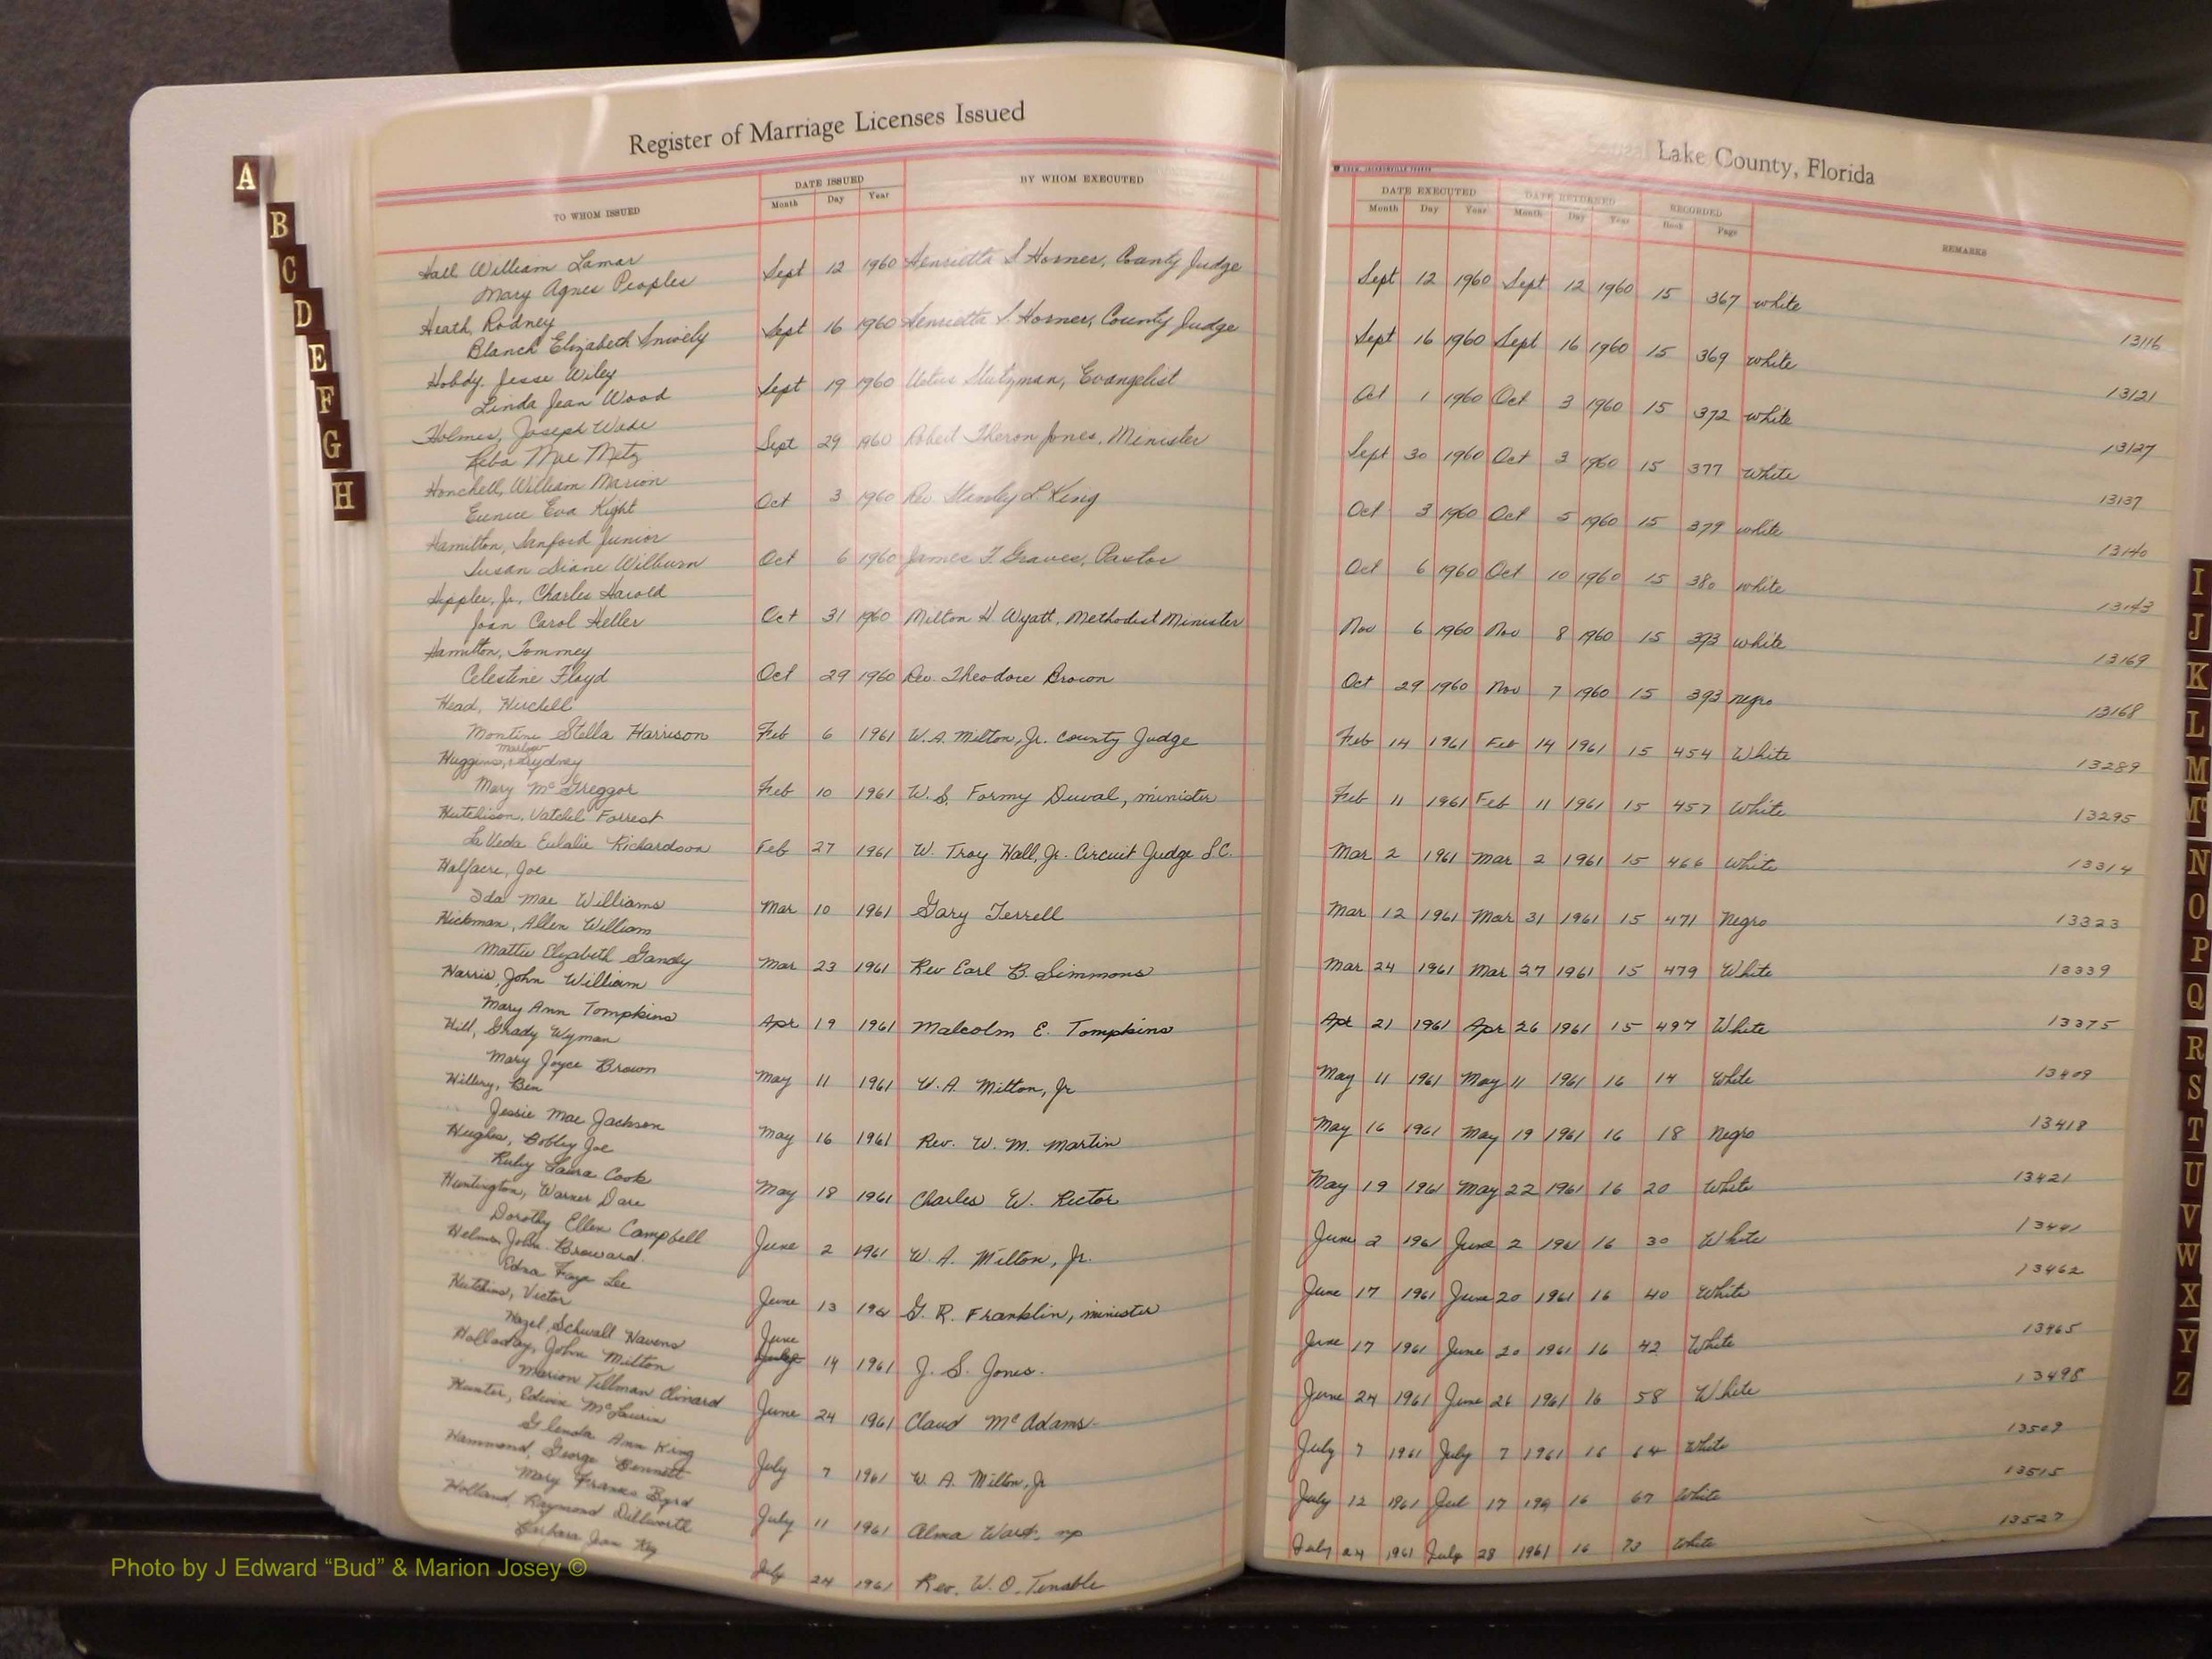 Register of Marriage Licenses Issued
Lake County, Florida
TO WHOM ISSUED DATE ISSUED Month Day Year BY WHOM EXECUTED DATE EXECUTED Month Day Year DATE RETURNED Month Day Year RECORDED Book Page REMARKS
Hall William Lamar
Mary Agnes Peoples Sept 12 1960 Henrietta S Horner, County Judge Sept 12 1960 Sept 12 1960 15 367 white 13116
Heath, Rodney
Blanch Elizabeth Snively Sept 16 1960 Henrietta S. Horner, County Judge Sept 16 1960 Sept 16 1960 15 369 white 13121
Hobdy, Jesse Wiley
Linda Jean Wood Sept 19 1960 Stutzman, Evangelist Oct 1 1960 Oct 3 1960 15 372 white 13127
Holmes, Joseph Wade
Reba Mae Metz Sept 29 1960 Robert Theron Jones, Minister Sept 30 1960 Oct 3 1960 15 377 White 13137
Honchell, William Marion
Eunice Eva Kight Oct 3 1960 Rev. Stanley L. King Oct 3 1960 Oct 5 1960 15 379 white 13140
Hamilton, Sanford Junior
Susan Diane Wilburn Oct 6 1960 James T. Graves, Pastor Oct 6 1960 Oct 10 1960 15 380 white 13143
Hippler, Jr., Charles Harold
Joan Carol Heller Oct 31 1960 Milton H Wyatt, Methodist Minister Nov 6 1960 Nov 8 1960 15 393 white 13169
Hamilton, Tommey
Celestine Floyd Oct 29 1960 Rev. Theodore Brown Oct 29 1960 Nov 7 1960 15 393 negro 13168
Head, Hershell
Montine Stella Harrison Feb 6 1961 W.A. Milton, Jr. County Judge Feb 14 1961 Feb 14 1961 15 454 White 13289
Huggins, Sydney
Mary McGreggor Feb 10 1961 W. S. Formy Duval, minister Feb 11 1961 Feb 11 1961 15 457 White 13295
Hutchison, Vatchel Forrest
LaVeda Eulalie Richardson Feb 27 1961 W. Troy Hall, Jr. Circuit Judge L.C. Mar 2 1961 Mar 2 1961 15 466 White 13314
Halfacre, Joe
Ida Mae Williams Mar 10 1961 Gary Terrell Mar 12 1961 Mar 31 1961 15 471 Negro 13323
Hickman, Allen William
Mattie Elizabeth Gandy Mar 23 1961 Rev Earl B. Simmons Mar 24 1961 Mar 27 1961 15 479 White 13339
Harris, John William
Mary Ann Tompkins Apr 19 1961 Malcolm E. Tompkins Apr 21 1961 Apr 26 1961 15 497 White 13375
Hill, Grady Wyman
Mary Joyce Brown May 11 1961 W. A. Milton, Jr May 11 1961 May 11 1961 16 14 White 13409
Hillery, Ben
Jessie Mae Jackson May 16 1961 Rev. W. M. Martin May 16 1961 May 19 1961 16 18 Negro 13418
Hughes, Bobby Joe
Ruby Laura Cook May 18 1961 Charles W. Rector May 19 1961 May 22 1961 16 20 White 13421
Huntington, Warner Dare
Dorothy Ellen Campbell June 2 1961 W. A. Milton, Jr. June 2 1961 June 2 1961 16 30 White 13441
Helms, John Broward.
Edna Faye Lee June 13 1961 G. R. Franklin, minister June 17 1961 June 20 1961 16 40 White 13462
Hutchins, Victor
Hazel Schwall Navens June 14 1961 J. S. Jones. June 17 1961 June 20 1961 16 42 White 13465
Holladay, John Milton
Marion Tillman Clinard June 24 1961 Claud McAdams June 24 1961 June 26 1961 16 58 White 13498
Hunter, Edwin McLaurin
Glenda Ann King July 7 1961 W. A. Milton, Jr July 7 1961 July 7 1961 16 64 White 13509
Hammond, George Bennett
Mary Frances Byrd July 11 1961 Alma Ward, np July 12 1961 Jul 17 16 67 White 13515
Holland, Raymond Dillworth
Barbara Jean Key July 24 1961 Rev. W. O. Tenable July 24 1961 July 28 1961 16 73 White 13527
A
B
C
D
E
F
G
H
I
J
K
L
M
Mc
N
O
P
Q
R
S
T
U
V
W
X
Y
Z
Photo by J Edward “Bud” & Marion Josey ©